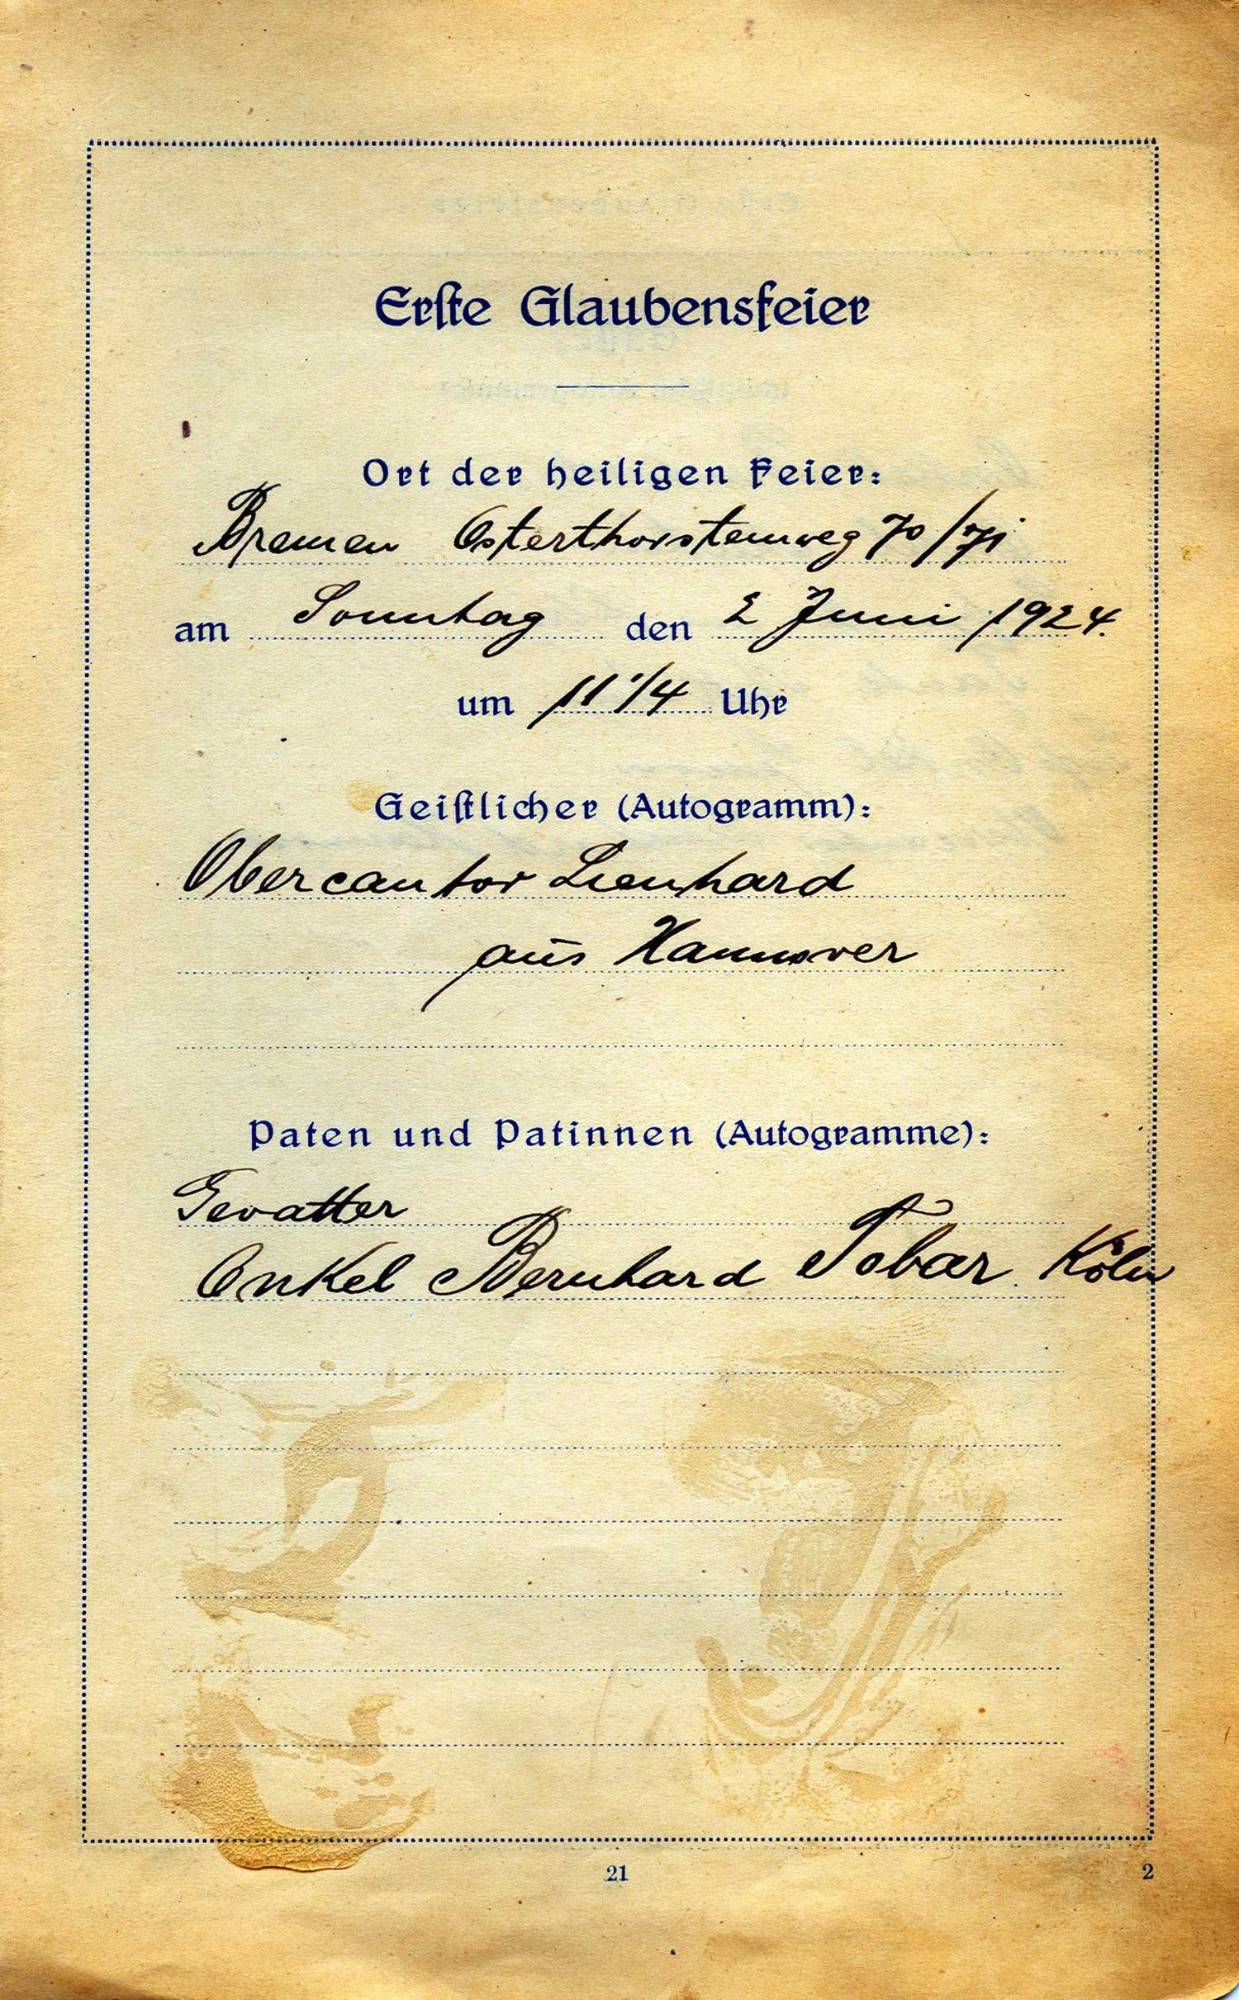 Erste Glaubensfeier
Ort der heiligen Feier:
Bremen Osterthorsteinweg 70/71
am Sonntag den 2 Juni 1924.
um 11 1/4 Uhr
Geistlicher (Autogramm):
Obercantor Lienhard
aus Hannover
Paten und Patinnen (Autogramme):
Gevatter
Onkel Bernhard Tobar Köln
21
2